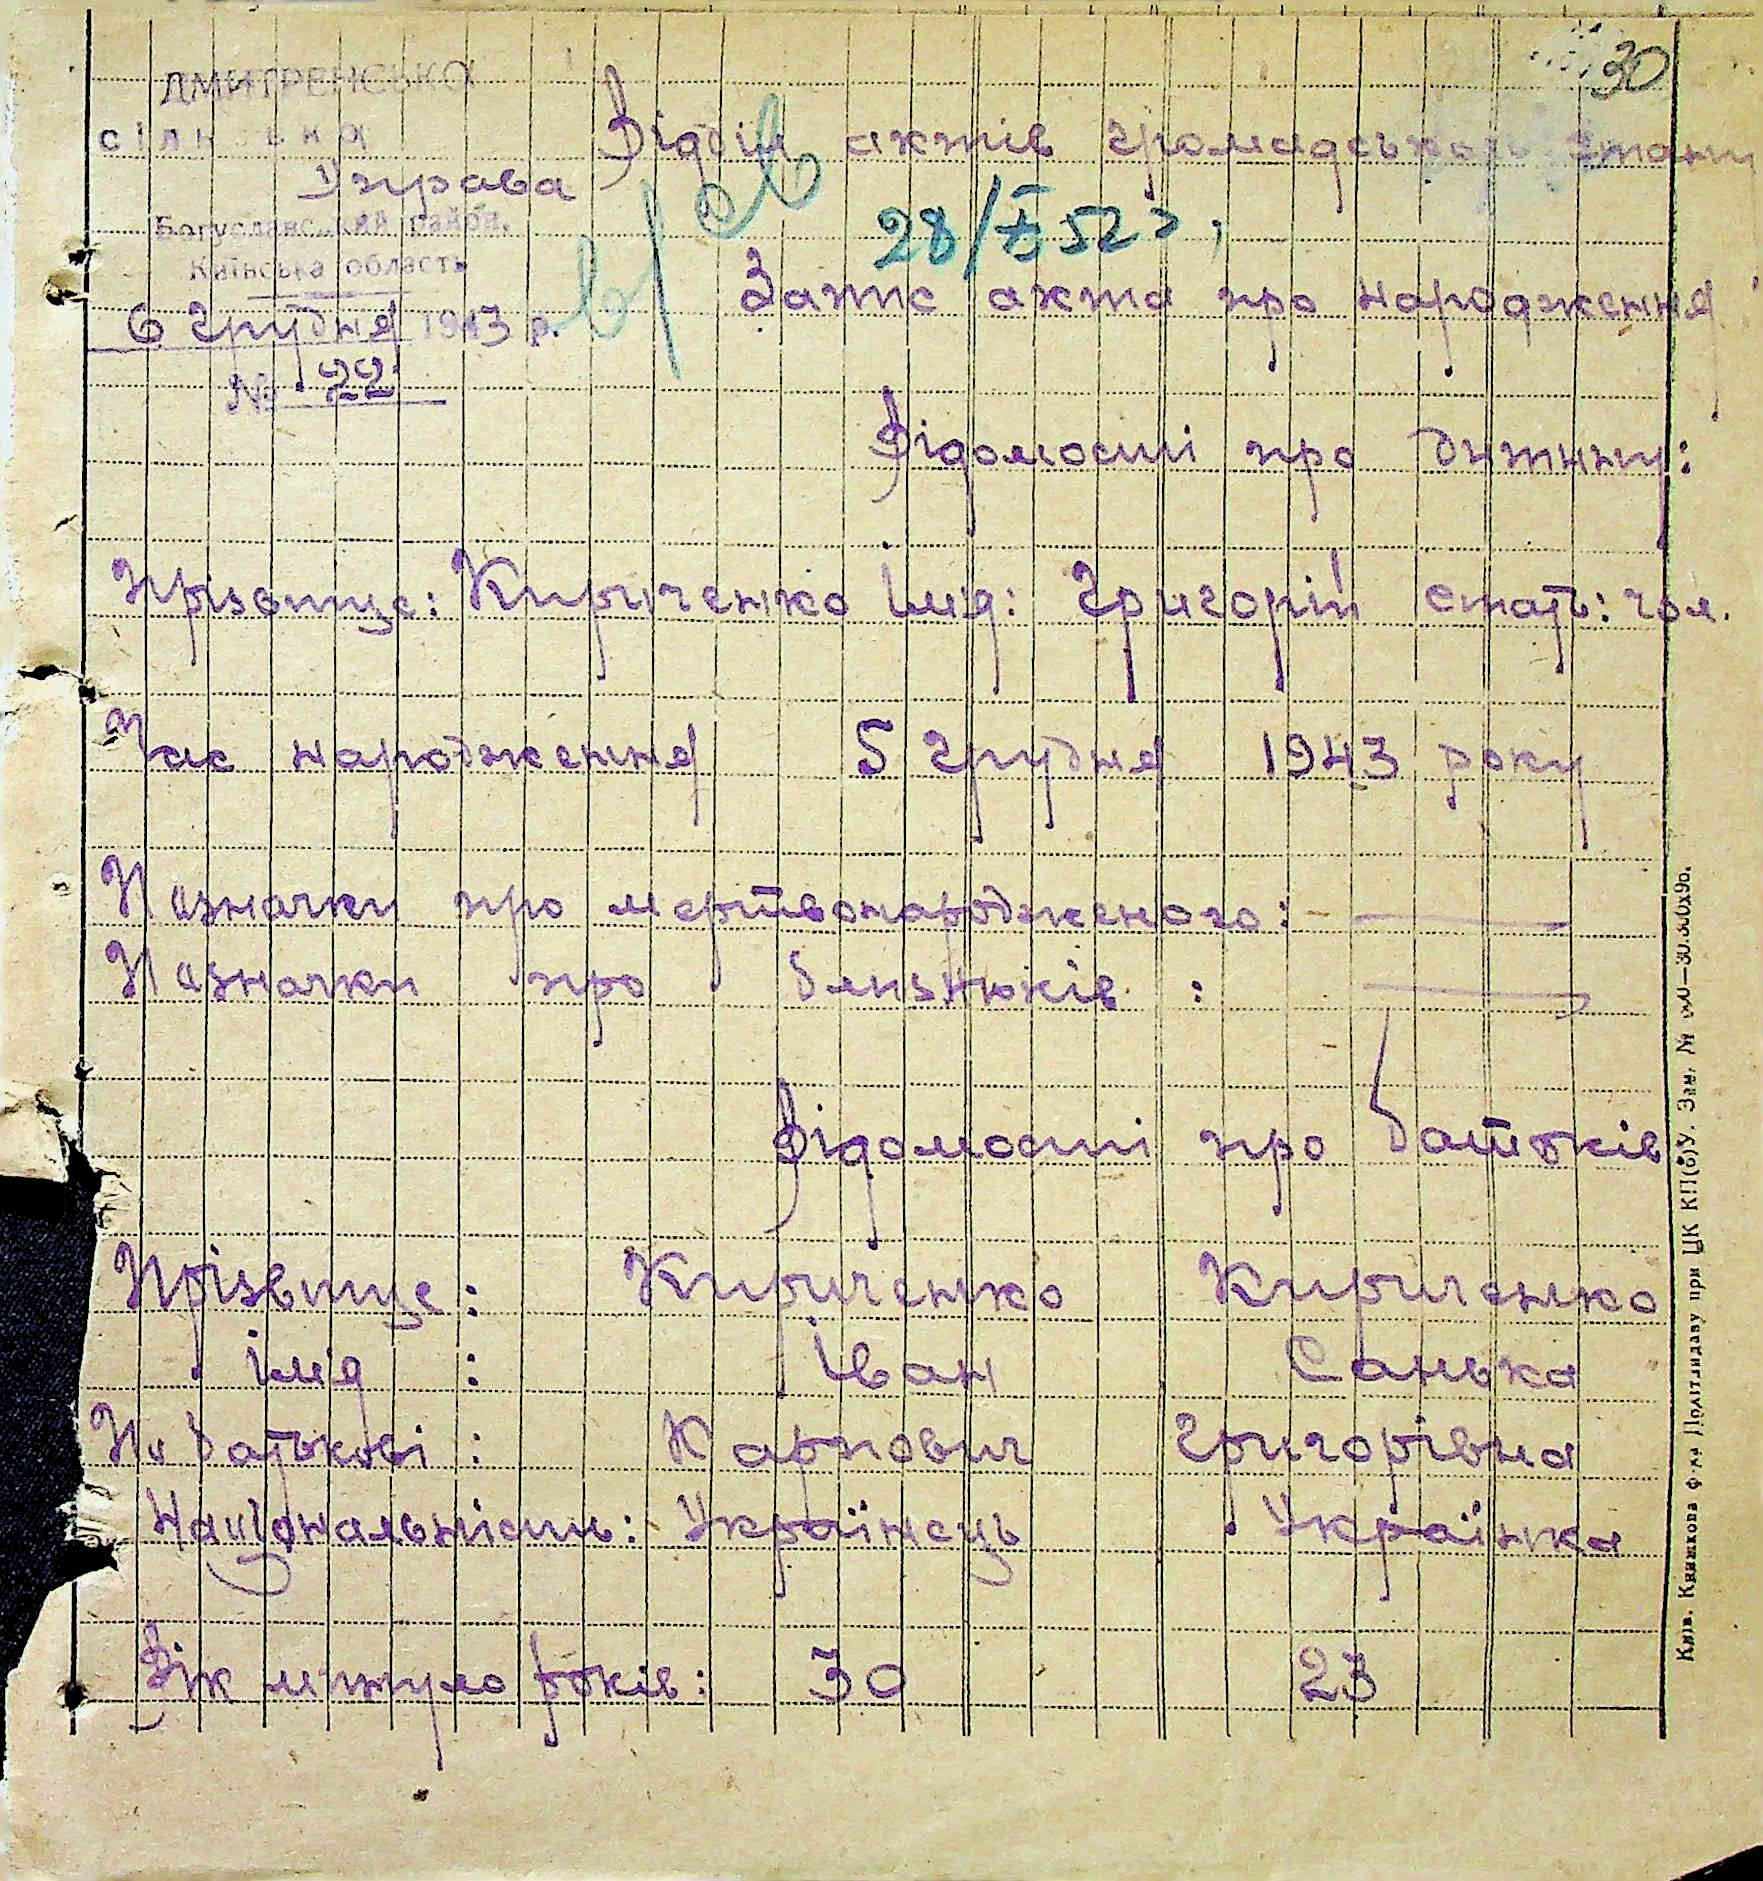 30
ДМИТРЕНСЬКА
сільська
Управа
Богуславський район.
Київська область
6 Грудня 1943 р.
№ 22
Відділ актів громадського стану
28/X 52 г.
Запис акта про народження
Відомості про дитину:
Прізвище: Кириченко Імя: Григорій стать: чол.
Час народження 5 Грудня 1943 року
Позначки про мертвонародженого: —
Позначки про близнюків : —
Відомості про батьків
Прізвище: Кириченко Кириченко
імя : Іван Санька
По батькові : Карпович Григорівна
Національність: Українець Українка
Вік минуло років: 30 23
Київ. Книжкова ф-ка Політвидаву при ЦК КП(б)У. Зам. №